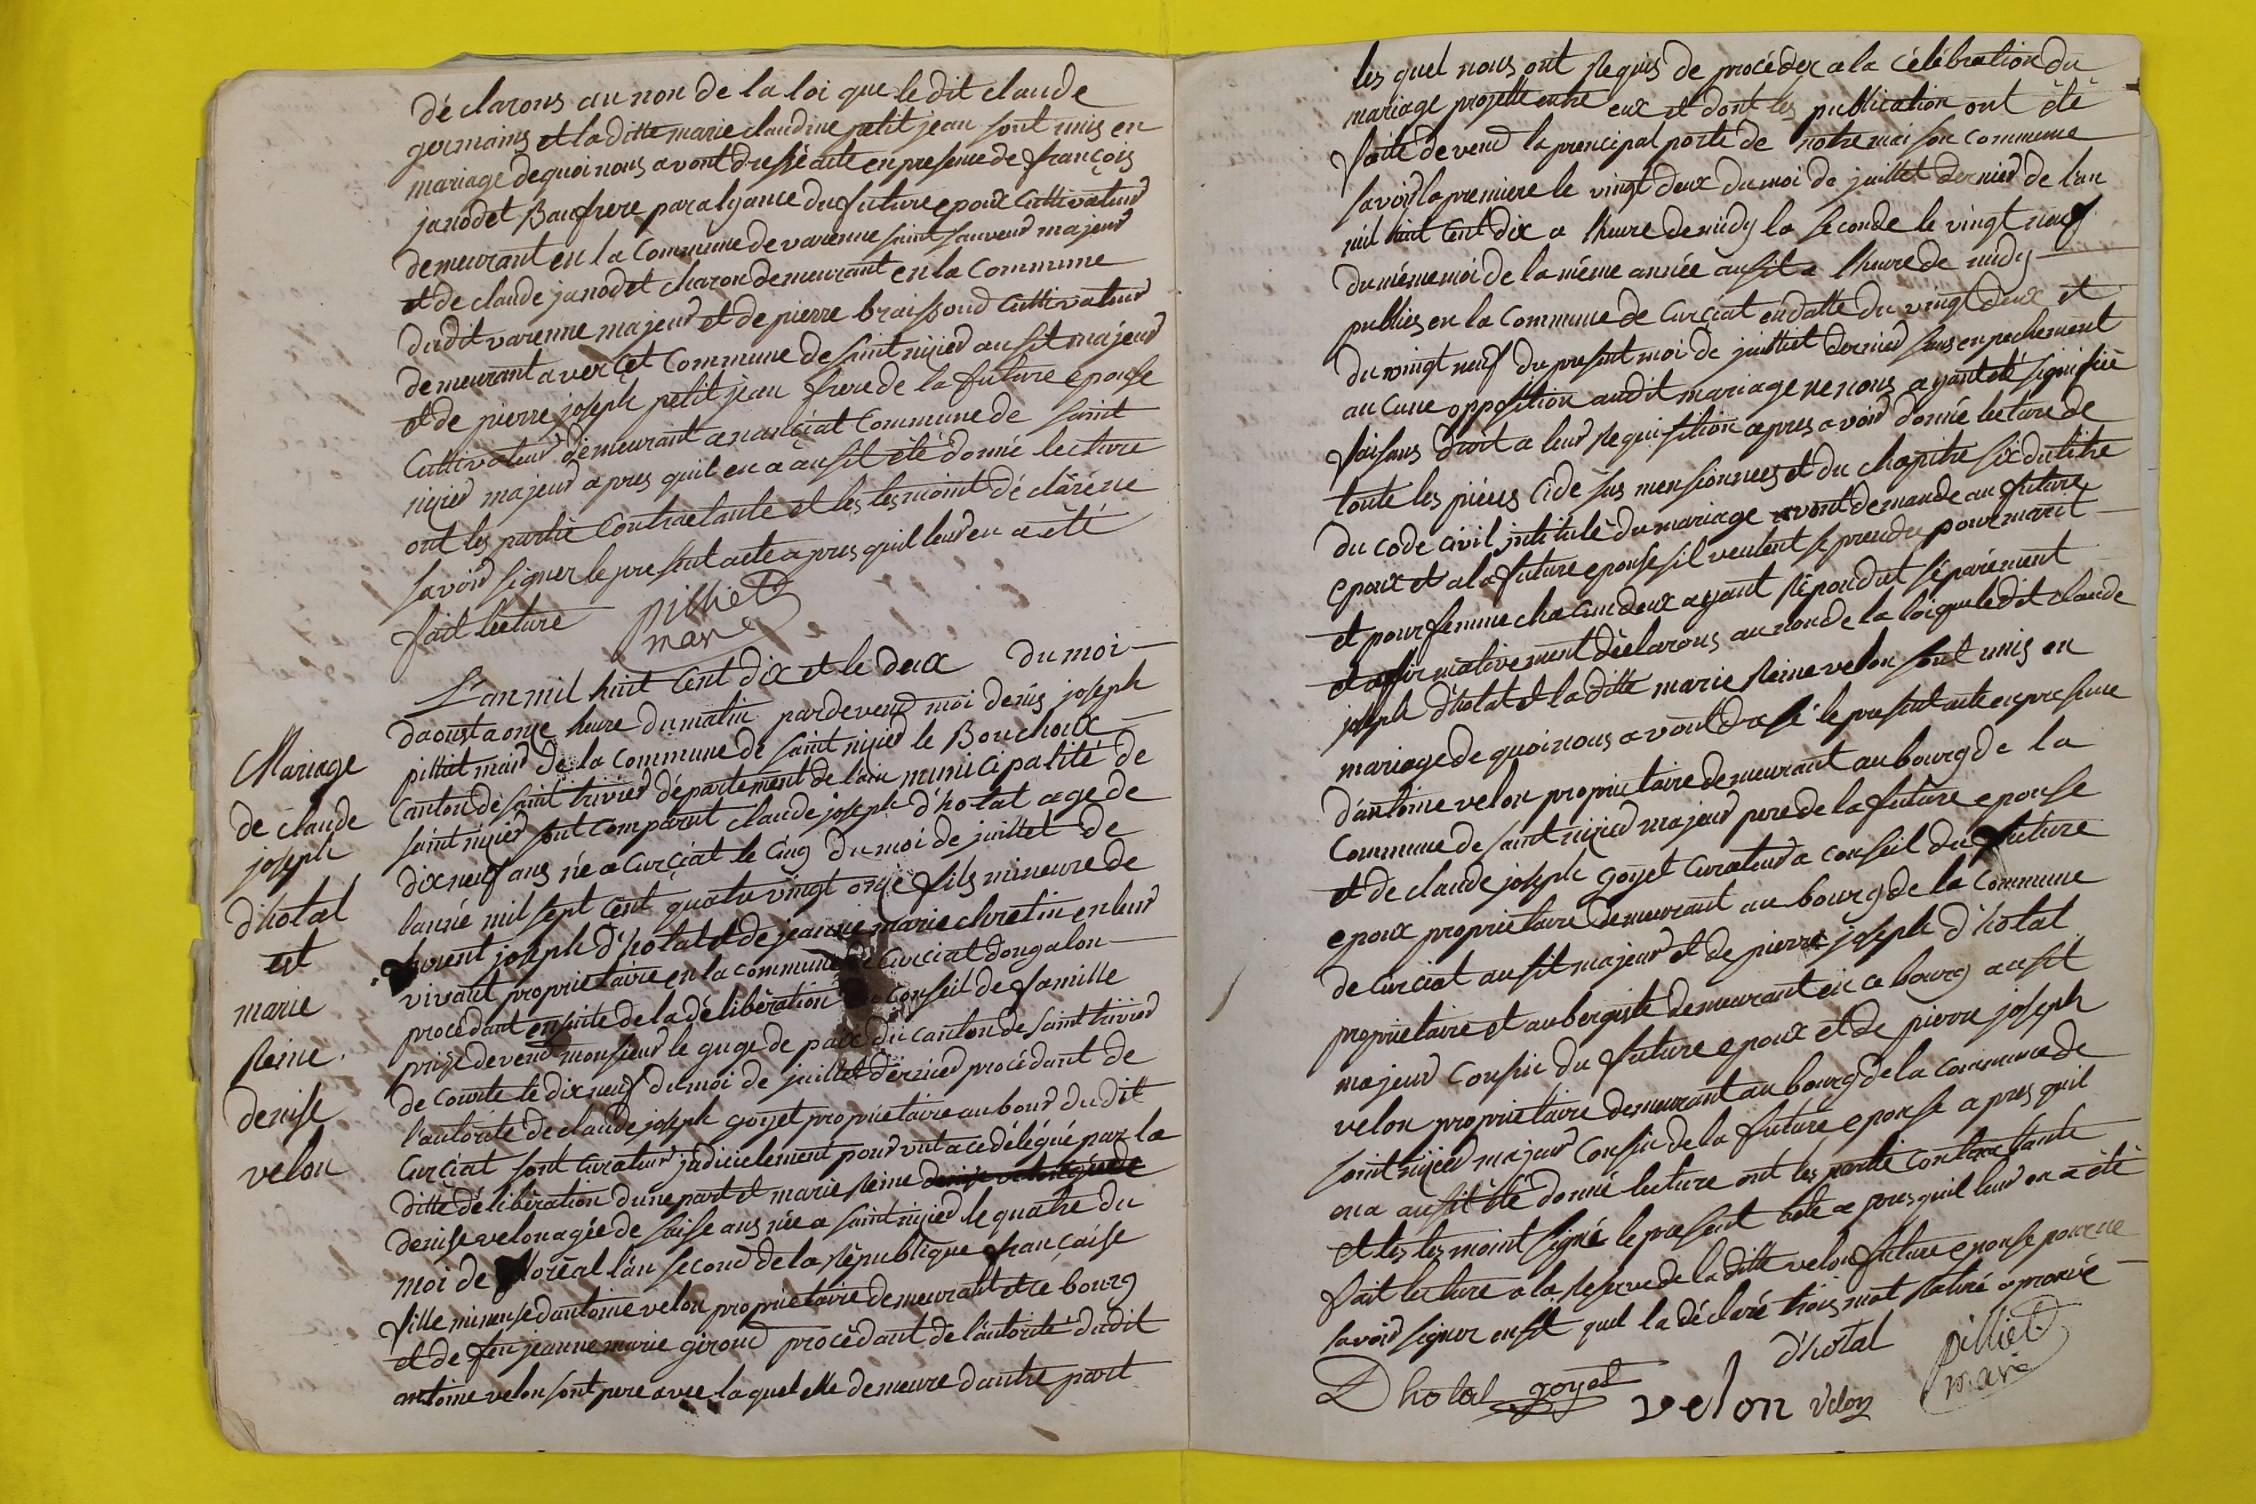 déclarons au non de la loi que le dit claude
germains et laditte marie claudine petit jean sont unis en
mariage de quoi nous avont dressé acte en presence de françois
janodet Baufrere par alyance du future epoux Cultivateur
demeurant en la Commune de varenne saint sauveur majeur
et de claude janodet charon demeurant en la Commune
dudit varenne majeur et de pierre braissoud Cultivateur
demeurant a verçet Commune de saint nizier ausit majeur
et de pierre joseph petit jean frere de la future epouse
Cultivateur demeurant a nançiat Commune de saint
nizier majeur apres quil en a ausit été donné lecture
ont les partie Contractante et les tesmoint déclaré ne
savoir signer le present acte apres quil leur en a été
fait lecture pilliet
mare
L'an mil huit Cent dix et le deux du moi
daoust a onze heure du matin pardevend moi denis joseph
pilliat mair de la Commune de saint nizier le Bouchoux
Canton de saint trivier département de lain municipalité de
saint nizier sont comparut claude joseph d'hotat age de
dix neuf ans née a Curçiat le Cinq du moi de juillet de
lanné mil sept Cent quatre vingt onze fils mineure de
laurent joseph d'hotat et de jeanne marie chretin en leur
vivant proprietaire en la commune de Curciat dongalon
procédant ensuite de la délibération du Conseil de famille
prize devend monsieur le guge de paix du canton de saint trivier
de Courte le dix neuf du moi de juillet dérnier procédant de
l'autorité de claude joseph goyet proprietaire au bour du dit
Curçiat sont Curateur judicielement pourvut a ce délégué par la
ditte délibération dune part et marie Reine
denise velon agée de saise ans née a saint nizier le quatre du
moi de floréal l'an second de la République française
fille mineuse dantoine velon proprietaire demeurant et ce bourg
et de feu jeanne marie giroud procédant de l'autorité dudit
antoine velon sont pere avec laquel elle demeure dautre part
Mariage
de claude
joseph
d'hotal
et
marie
Reine
denise
velon
les quel nous ont Requis de procéder a la célébration du
mariage projetté entre eux et dont les publication ont été
faite devend la prencipal porte de notre maison commune
savoir la premiere le vingt deux du moi de juillet dernier de l'an
mil huit Cent dix a lheure de midy la seconde le vingt neuf
du même moi de la même année ausit a lheure de midy
publies en la Commune de Curçiat en datte du vingt deux et
du vingt neuf du present moi de juilliet dernier sans enpechement
aucune opposition audit mariage ne nous ayant été signifiée
faisans droit a leur Requisition apres avoir donné lecture de
toute les piéces Cide sus mensionnées et du chapitre six du titre
du code civil intitulé du mariage avont demande au future
epoux et a la future epouse sil veulent se prendre pour marit
et pour femme chacun deux ayant Répondut séparément
et affirmativement déclarons au non de la loi que le dit claude
joseph d'hotat et la ditte marie Reine velon sont unis en
mariage de quoi nous avont dressé le present acte en presence
d'antoine velon proprietaire demeurant au bourg de la
Commune de saint nizier majeur pere de la future epouse
et de claude joseph goyet Curateur a conseil du future
epoux proprietaire demeurant au bourg de la Commune
de Curciat ausit majeur et de pierre joseph d'hotat
proprietaire et aubergiste demeurant en ce bourg ausit
majeur cousin du future epoux et de pierre joseph
velon proprietaire demeurant au bourg de la commune de
saint nizier majeur Cousin de la future epouse apres quil
en a ausit été donné lecture ont les partie contractante
et les tesmoint signé le present acte apres quil leur en a été
fait lecture a la Reserve de la ditte velon future epouse pour ne
savoir signer ensit quel la déclaré trois mot Raturé aprouvé
d'hotal pilliet
mare
Dhotal goyet velon velon